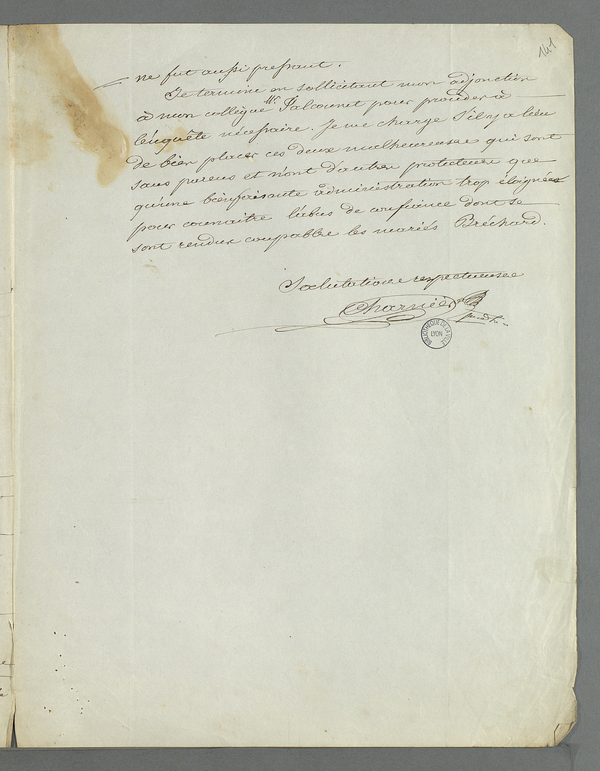 141
ne fut aussi pressant.
Je termine en sollicitant mon adjonction
à mon collègue Mr. Falconnet pour procéder à
l'enquête nécessaire. Je me charge s'il y a lieu
de bien placer ces deux malheureuses qui sont
sans parens et n'ont d'autre protecteur que
qu'une bienfaisante administration trop éloignée
pour connaitre l'abus de confiance dont se
sont rendus coupable les mariés Bréchard.
Salutations respectueuses
Charnier
BIBLIOTHEQUE DE LA VILLE
LYON